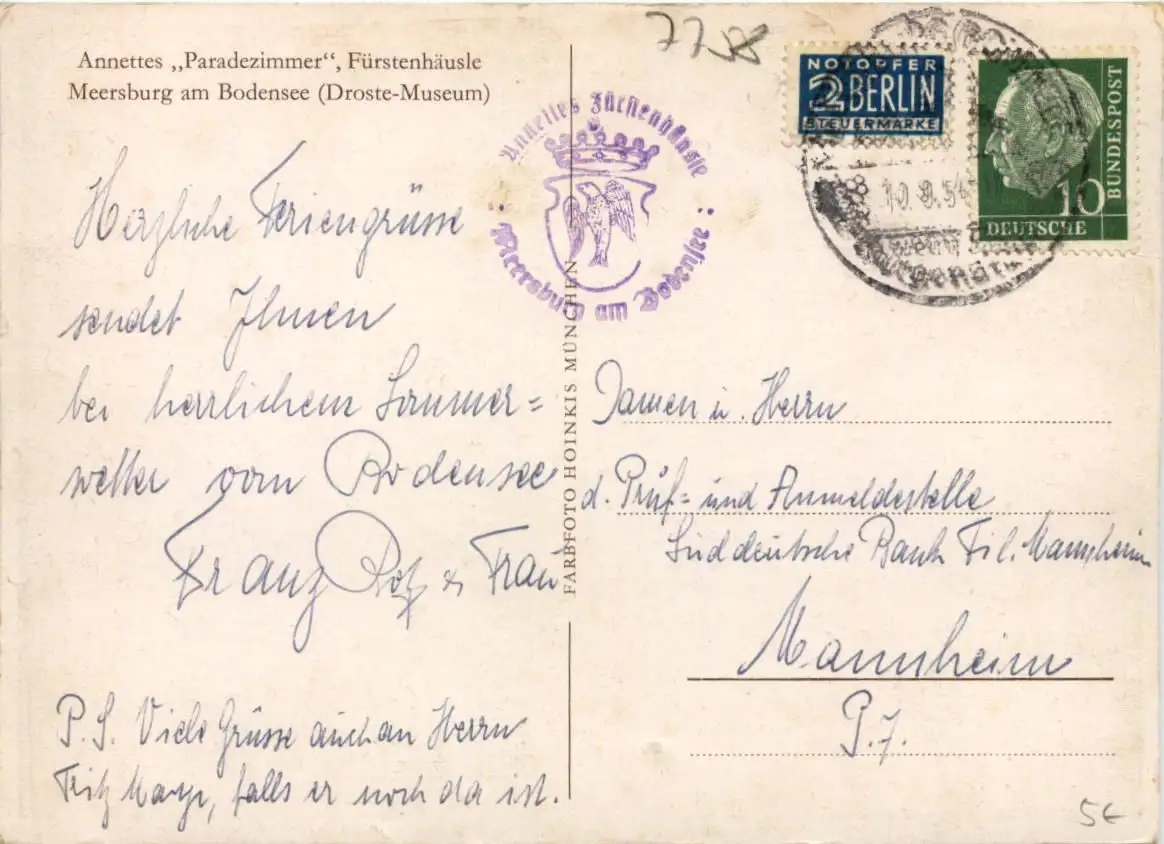 Annettes „Paradezimmer“, Fürstenhäusle
Meersburg am Bodensee (Droste-Museum)
7758
Annettes Fürstenhäusle
: Meersburg am Bodensee :
NOTOPFER
2 BERLIN
STEUERMARKE
10
DEUTSCHE
BUNDESPOST
10.9.54
Herzliche Feriengrüsse
sendet Ihnen
bei herrlichem Sommer=
wetter vom Bodensee
Franz & Frau
P.S. Viele Grüsse auch an Herrn
Fritz, falls er noch da ist.
FARBFOTO HOINKIS MÜNCHEN
Damen u. Herrn
d. Prüf= und Anmeldestelle
Süddeutsche Bank Fil. Mannheim
Mannheim
P.7.
5€